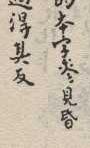 的本字參見昏
過得其反